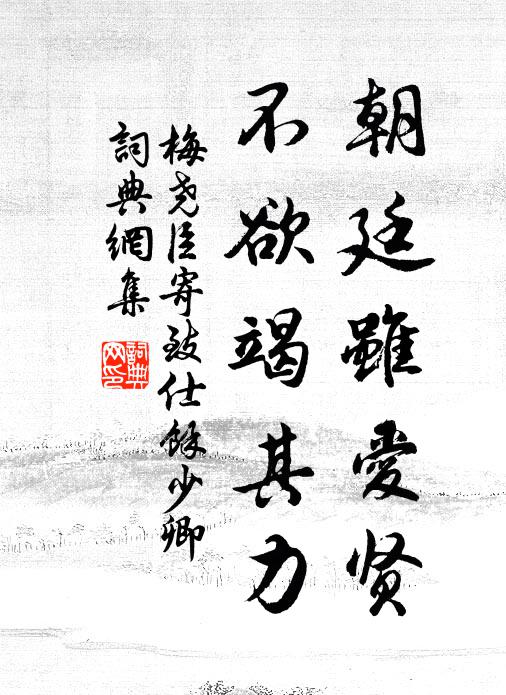 朝廷雖愛贤
不欲竭其力
梅尧臣寄致仕馀少卿
詞典網集
詞典網印